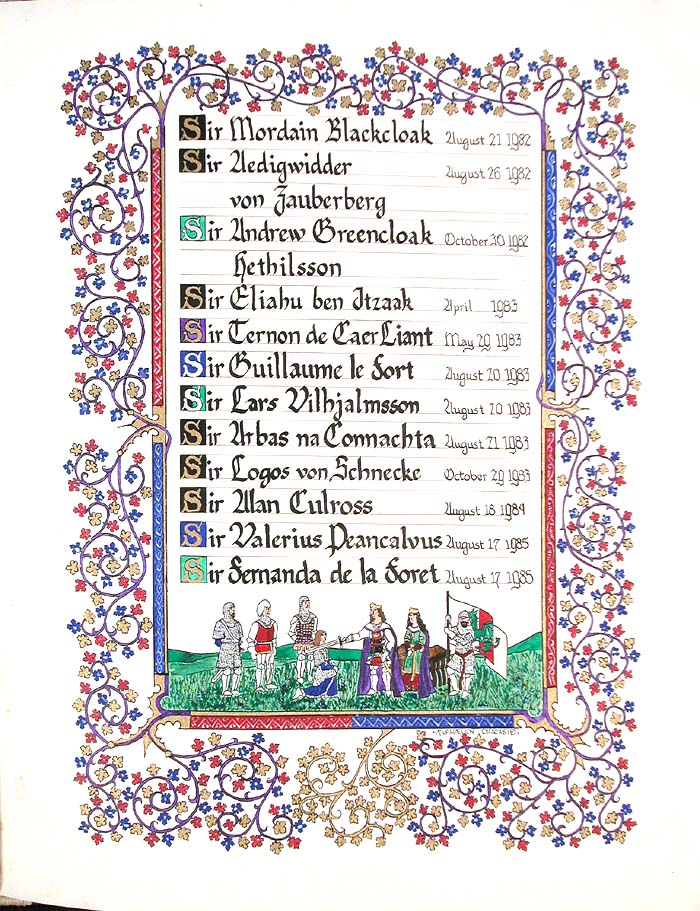 Sir Mordain Blackcloak August 21 1982
Sir Aedigwidder August 26 1982
von Zauberberg
Sir Andrew Greencloak October 30 1982
Hethilsson
Sir Eliahu ben Itzaak April 1983
Sir Ternon de CaerLiant May 29 1983
Sir Guillaume le Fort August 20 1983
Sir Lars Vilhjalmsson August 20 1983
Sir Arbas na Connachta August 21 1983
Sir Logos von Schnecke October 29 1983
Sir Alan Culross August 18 1984
Sir Valerius Peancalvus August 17 1985
Sir Fernanda de la Foret August 17 1985